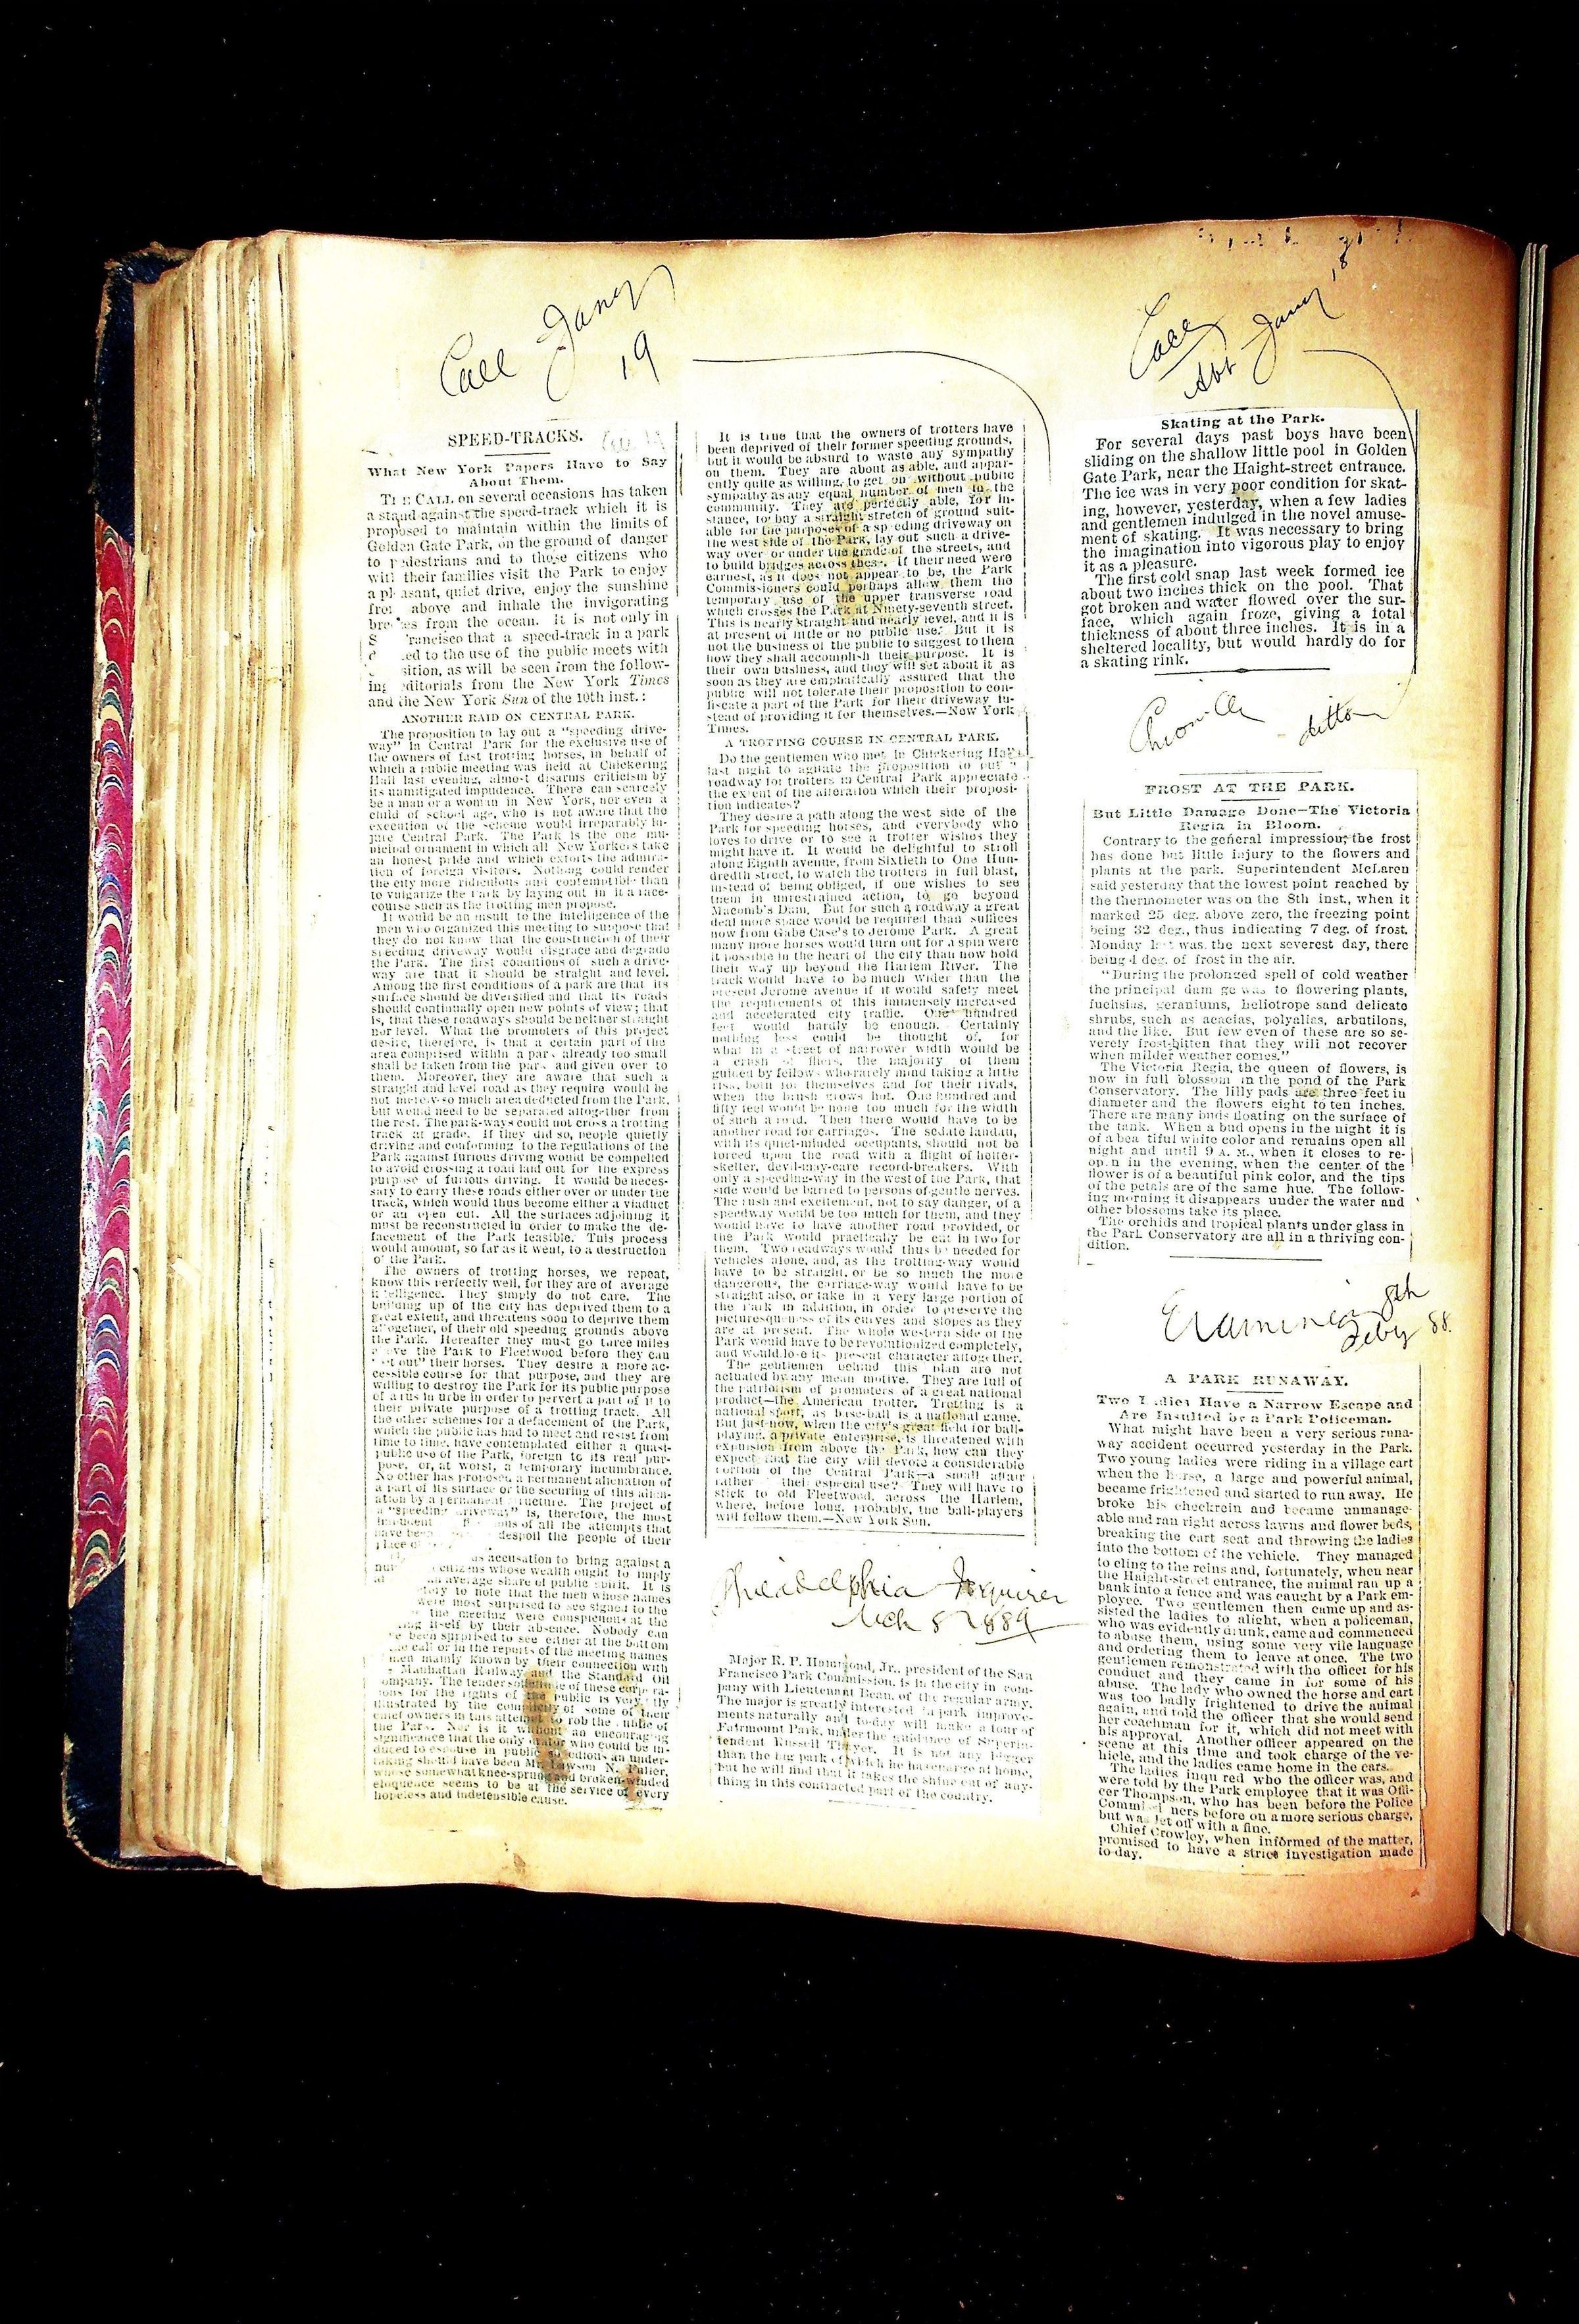 Call Jany
19
SPEED-TRACKS.
What New York Papers Have to Say
About Them.
THE CALL on several occasions has taken
a stand against the speed-track which it is
proposed to maintain within the limits of
Golden Gate Park, on the ground of danger
to pedestrians and to those citizens who
with their families visit the Park to enjoy
a pleasant, quiet drive, enjoy the sunshine
from above and inhale the invigorating
breezes from the ocean. It is not only in
S rancisco that a speed-track in a park
ed to the use of the public meets with
sition, as will be seen from the follow-
ing editorials from the New York Times
and the New York Sun of the 10th inst.:
ANOTHER RAID ON CENTRAL PARK.
The proposition to lay out a "speeding drive-
way" in Central Park for the exclusive use of
the owners of fast trotting horses, in behalf of
which a public meeting was held at Chickering
Hall last evening, almost disarms criticism by
its unmitigated impudence. There can scarcely
be a man or a woman in New York, nor even a
child of school age, who is not aware that the
execution of the scheme would irreparably in-
jure Central Park. The Park is the one mu-
nicipal ornament in which all New Yorkers take
an honest pride and which extorts the admira-
tion of foreign visitors. Nothing could render
the city more ridiculous and contemptible than
to vulgarize the Park by laying out in it a race-
course such as the trotting men propose.
It would be an insult to the intelligence of the
men who organized this meeting to suppose that
they do not know that the construction of their
speeding driveway would disgrace and degrade
the Park. The first conditions of such a drive-
way are that it should be straight and level.
Among the first conditions of a park are that its
surface should be diversified and that its roads
should continually open new points of view; that
is, that these roadways should be neither straight
nor level. What the promoters of this project
desire, therefore, is that a certain part of the
area comprised within a park already too small
shall be taken from the park and given over to
them. Moreover, they are aware that such a
straight and level road as they require would be
not merely so much area deducted from the Park,
but would need to be separated altogether from
the rest. The park-ways could not cross a trotting
track at grade. If they did so, people quietly
driving and conforming to the regulations of the
Park against furious driving would be compelled
to avoid crossing a road laid out for the express
purpose of furious driving. It would be neces-
sary to carry these roads either over or under the
track, which would thus become either a viaduct
or an open cut. All the surfaces adjoining it
must be reconstructed in order to make the de-
facement of the Park feasible. This process
would amount, so far as it went, to a destruction
of the Park.
The owners of trotting horses, we repeat,
know this perfectly well, for they are of average
intelligence. They simply do not care. The
building up of the city has deprived them to a
great extent, and threatens soon to deprive them
altogether, of their old speeding grounds above
the Park. Hereafter they must go three miles
above the Park to Fleetwood before they can
"let out" their horses. They desire a more ac-
cessible course for that purpose, and they are
willing to destroy the Park for its public purpose
of a rus in urbe in order to pervert a part of it to
their private purpose of a trotting track. All
the other schemes for a defacement of the Park,
which the public has had to meet and resist from
time to time, have contemplated either a quasi-
public use of the Park, foreign to its real pur-
pose, or, at worst, a temporary incumbrance.
No other has proposed a permanent alienation of
a part of its surface or the securing of this alien-
ation by a permanent structure. The project of
a "speeding driveway" is, therefore, the most
of all the attempts that
have been despoil the people of their
place of
accusation to bring against a
citizens whose wealth ought to imply
an average share of public spirit. It is
to note that the men whose names
were most surprised to see signed to the
the meeting were conspicuous at the
itself by their absence. Nobody can
been surprised to see either at the bottom
call or in the reports of the meeting names
men mainly known by their connection with
Manhattan Railway and the Standard Oil
ompany. The tender of these corpora-
tions for the rights of the public is very
illustrated by the of some of their
chief owners in this attempt to rob the public of
the Park. Nor is it without an encouraging
significance that the only orator who could be in-
duced to espouse in public an under-
taking should have been Mr. Lawson N. Fuller,
whose somewhat knee-sprung and broken-winded
eloquence seems to be at the service of every
hopeless and indefensible cause.
It is true that the owners of trotters have
been deprived of their former speeding grounds,
but it would be absurd to waste any sympathy
on them. They are about as able, and appar-
ently quite as willing, to get on without public
sympathy as any equal number of men in the
community. They are perfectly able, for in-
stance, to buy a straight stretch of ground suit-
able for the purposes of a speeding driveway on
the west side of the Park, lay out such a drive-
way over or under the grade of the streets, and
to build bridges across these. If their need were
earnest, as it does not appear to be, the Park
Commissioners could perhaps allow them the
temporary use of the upper transverse road
which crosses the Park at Ninety-seventh street.
This is nearly straight and nearly level, and it is
at present of little or no public use. But it is
not the business of the public to suggest to them
how they shall accomplish their purpose. It is
their own business, and they will set about it as
soon as they are emphatically assured that the
public will not tolerate their proposition to con-
fiscate a part of the Park for their driveway in-
stead of providing it for themselves.—New York
Times.
A TROTTING COURSE IN CENTRAL PARK.
Do the gentlemen who met in Chickering Hall
last night to agitate the proposition to cut a
roadway for trotters in Central Park appreciate
the extent of the alteration which their proposi-
tion indicates?
They desire a path along the west side of the
Park for speeding horses, and everybody who
loves to drive or to see a trotter wishes they
might have it. It would be delightful to stroll
along Eighth avenue, from Sixtieth to One Hun-
dredth street, to watch the trotters in full blast,
instead of being obliged, if one wishes to see
them in unrestrained action, to go beyond
Macomb's Dam. But for such a roadway a great
deal more space would be required than suffices
now from Gabe Case's to Jerome Park. A great
many more horses would turn out for a spin were
it possible in the heart of the city than now hold
their way up beyond the Harlem River. The
track would have to be much wider than the
present Jerome avenue if it would safely meet
the requirements of this immensely increased
and accelerated city traffic. One hundred
feet would hardly be enough. Certainly
nothing less could be thought of, for
what in a street of narrower width would be
a crush of fliers, the majority of them
guided by fellows who rarely mind taking a little
risk, both for themselves and for their rivals,
when the brush grows hot. One hundred and
fifty feet would be none too much for the width
of such a road. Then there would have to be
another road for carriages. The sedate landau,
with its quiet-minded occupants, should not be
forced upon the road with a flight of helter-
skelter, devil-may-care record-breakers. With
only a speeding-way in the west of the Park, that
side would be barred to persons of gentle nerves.
The rush and excitement, not to say danger, of a
speedway would be too much for them, and they
would have to have another road provided, or
the Park would practically be cut in two for
them. Two roadways would thus be needed for
vehicles alone, and, as the trotting-way would
have to be straight, or be so much the more
dangerous, the carriage-way would have to be
straight also, or take in a very large portion of
the Park in addition, in order to preserve the
picturesqueness of its curves and slopes as they
are at present. The whole western side of the
Park would have to be revolutionized completely,
and would lose its present character altogether.
The gentlemen behind this plan are not
actuated by any mean motive. They are full of
the patriotism of promoters of a great national
product—the American trotter. Trotting is a
national sport, as base-ball is a national game.
But just now, when the city's great field for ball-
playing, a private enterprise, is threatened with
expulsion from above the Park, how can they
expect that the city will devote a considerable
portion of the Central Park—a small affair
rather their especial use? They will have to
stick to old Fleetwood, across the Harlem,
where, before long, probably, the ball-players
will follow them.—New York Sun.
Philadelphia Inquirer
Mch 8 1889
Major R. P. Hammond, Jr., president of the San
Francisco Park Commission, is in the city in com-
pany with Lieutenant Bean, of the regular army.
The major is greatly interested in park improve-
ments naturally and to-day will make a tour of
Fairmount Park, under the guidance of Superin-
tendent Russell Thayer. It is not any bigger
than the big park of which he has charge at home,
but he will find that it takes the shine out of any-
thing in this contracted part of the country.
Call
Abt Jany 18
Skating at the Park.
For several days past boys have been
sliding on the shallow little pool in Golden
Gate Park, near the Haight-street entrance.
The ice was in very poor condition for skat-
ing, however, yesterday, when a few ladies
and gentlemen indulged in the novel amuse-
ment of skating. It was necessary to bring
the imagination into vigorous play to enjoy
it as a pleasure.
The first cold snap last week formed ice
about two inches thick on the pool. That
got broken and water flowed over the sur-
face, which again froze, giving a total
thickness of about three inches. It is in a
sheltered locality, but would hardly do for
a skating rink.
Chronicle ditto
FROST AT THE PARK.
But Little Damage Done—The Victoria
Regia in Bloom.
Contrary to the general impression, the frost
has done but little injury to the flowers and
plants at the park. Superintendent McLaren
said yesterday that the lowest point reached by
the thermometer was on the 8th inst., when it
marked 25 deg. above zero, the freezing point
being 32 deg., thus indicating 7 deg. of frost.
Monday last was the next severest day, there
being 4 deg. of frost in the air.
"During the prolonged spell of cold weather
the principal damage was to flowering plants,
fuchsias, geraniums, heliotrope sand delicate
shrubs, such as acacias, polyalias, arbutilons,
and the like. But few even of these are so se-
verely frost-bitten that they will not recover
when milder weather comes."
The Victoria Regia, the queen of flowers, is
now in full blossom in the pond of the Park
Conservatory. The lilly pads are three feet in
diameter and the flowers eight to ten inches.
There are many buds floating on the surface of
the tank. When a bud opens in the night it is
of a beautiful white color and remains open all
night and until 9 A. M., when it closes to re-
open in the evening, when the center of the
flower is of a beautiful pink color, and the tips
of the petals are of the same hue. The follow-
ing morning it disappears under the water and
other blossoms take its place.
The orchids and tropical plants under glass in
the Park Conservatory are all in a thriving con-
dition.
Examiner 9th
Feby 88.
A PARK RUNAWAY.
Two Ladies Have a Narrow Escape and
Are Insulted by a Park Policeman.
What might have been a very serious runa-
way accident occurred yesterday in the Park.
Two young ladies were riding in a village cart
when the horse, a large and powerful animal,
became frightened and started to run away. He
broke his checkrein and became unmanage-
able and ran right across lawns and flower beds,
breaking the cart seat and throwing the ladies
into the bottom of the vehicle. They managed
to cling to the reins and, fortunately, when near
the Haight-street entrance, the animal ran up a
bank into a fence and was caught by a Park em-
ployee. Two gentlemen then came up and as-
sisted the ladies to alight, when a policeman,
who was evidently drunk, came and commenced
to abuse them, using some very vile language
and ordering them to leave at once. The two
gentlemen remonstrated with the officer for his
conduct and they came in for some of his
abuse. The lady who owned the horse and cart
was too badly frightened to drive the animal
again, and told the officer that she would send
her coachman for it, which did not meet with
his approval. Another officer appeared on the
scene at this time and took charge of the ve-
hicle, and the ladies came home in the cars.
The ladies inquired who the officer was, and
were told by the Park employee that it was Offi-
cer Thompson, who has been before the Police
Commissioners before on a more serious charge,
but was let off with a fine.
Chief Crowley, when informed of the matter,
promised to have a strict investigation made
to-day.